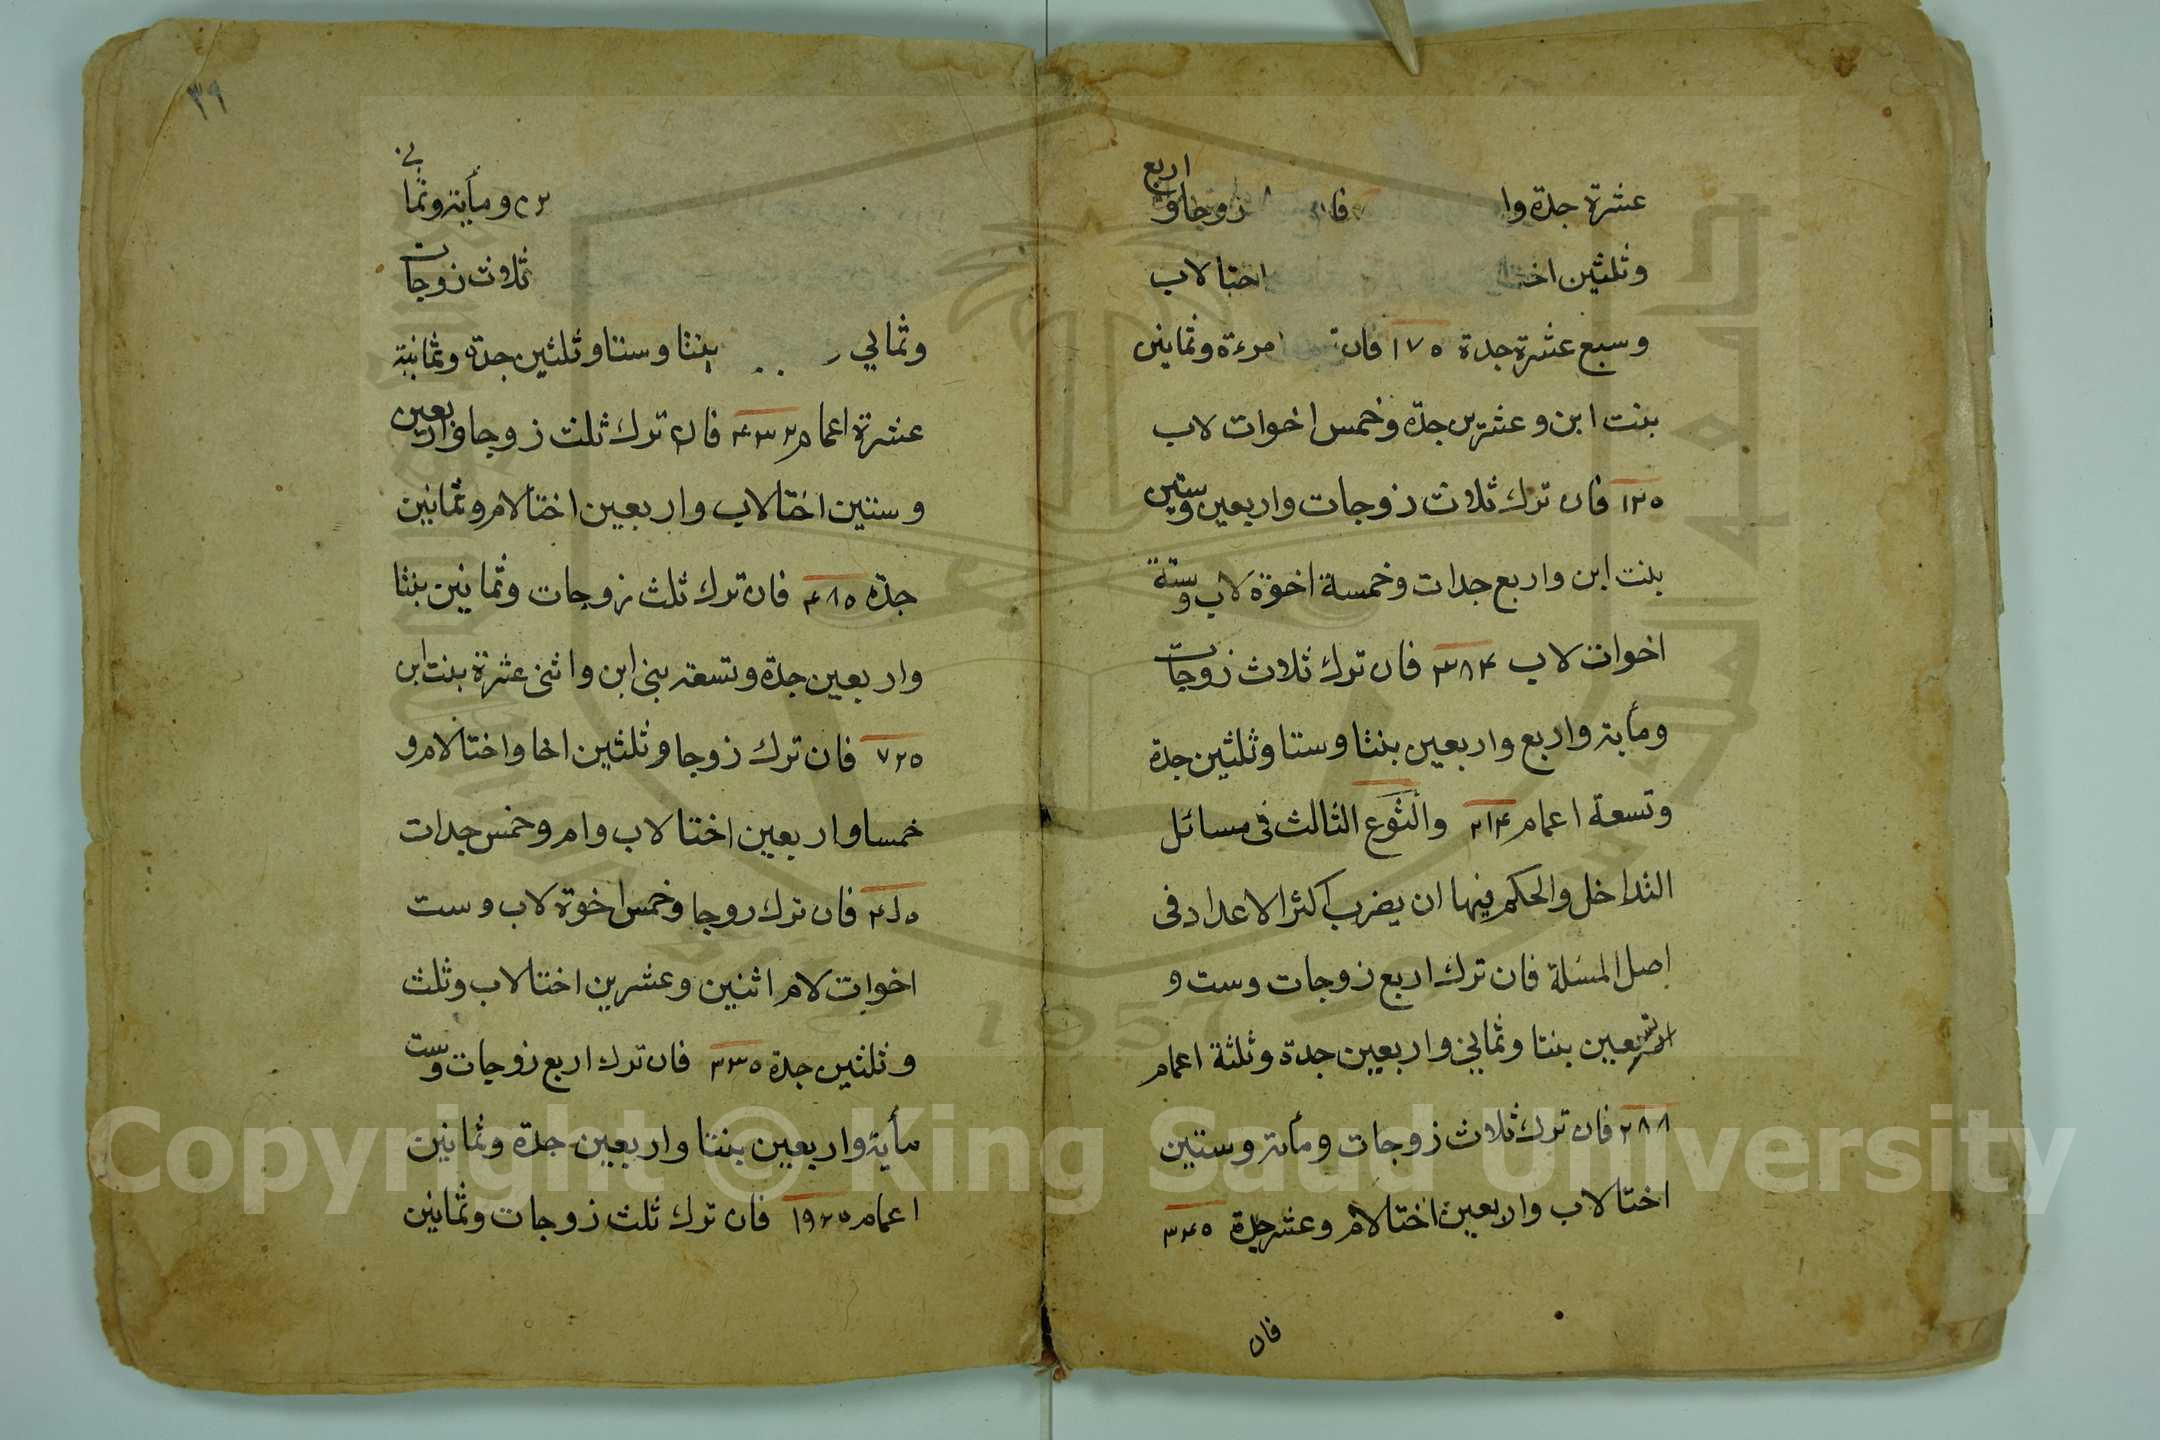 عشرة جدة وا فان زوجا واربع
وثلثين اختا لاب
وسبع عشرة جدة ١٧٥ فان امرءة وثمانين
بنت ابن وعشرين جدة وخمس اخوات لاب
١٢٥ فان ترك ثلاث زوجات واربعين وستين
بنت ابن واربع جدات وخمسة اخوة لاب وستة
اخوات لاب ٣٨٤ فان ترك ثلاث زوجات
ومأية واربع واربعين بنتا وستا وثلثين جدة
وتسعة اعمام ٢١٤ والنوع الثالث فى مسائل
التداخل والحكم فيها ان يضرب اكثر الاعداد فى
اصل المسئلة فان ترك اربع زوجات وست و
تسعين بنتا وثماني واربعين جدة وثلثة اعمام
٢٨٨ فان ترك ثلاث زوجات ومأية وستين
اختا لاب واربعين اختا لام وعشر جدة ٣٤٥
فان
٣٩
ومأية وثماني
ثلاث زوجات
وثماني بنتا وستا وثلثين جدة وثمانية
عشرة اعمام ٤٣٢ فان ترك ثلث زوجات واربعين
وستين اختا لاب واربعين اختا لام وثمانين
جدة ٤٨٥ فان ترك ثلث زوجات وثمانين بنتا
واربعين جدة وتسعة بنى ابن واثنى عشرة بنت ابن
٧٢٥ فان ترك زوجا وثلثين اخا واختا لام و
خمسا واربعين اختا لاب وام وخمس جدات
فان ترك زوجا وخمس اخوة لاب وست
اخوات لام اثنين وعشرين اختا لاب وثلث
وثلثين جدة ٣٣٥ فان ترك اربع زوجات وست
مأية واربعين بنتا واربعين جدة وثمانين
اعمام ١٩٢٥ فان ترك ثلث زوجات وثمانين
Copyright © King Saud University
1957